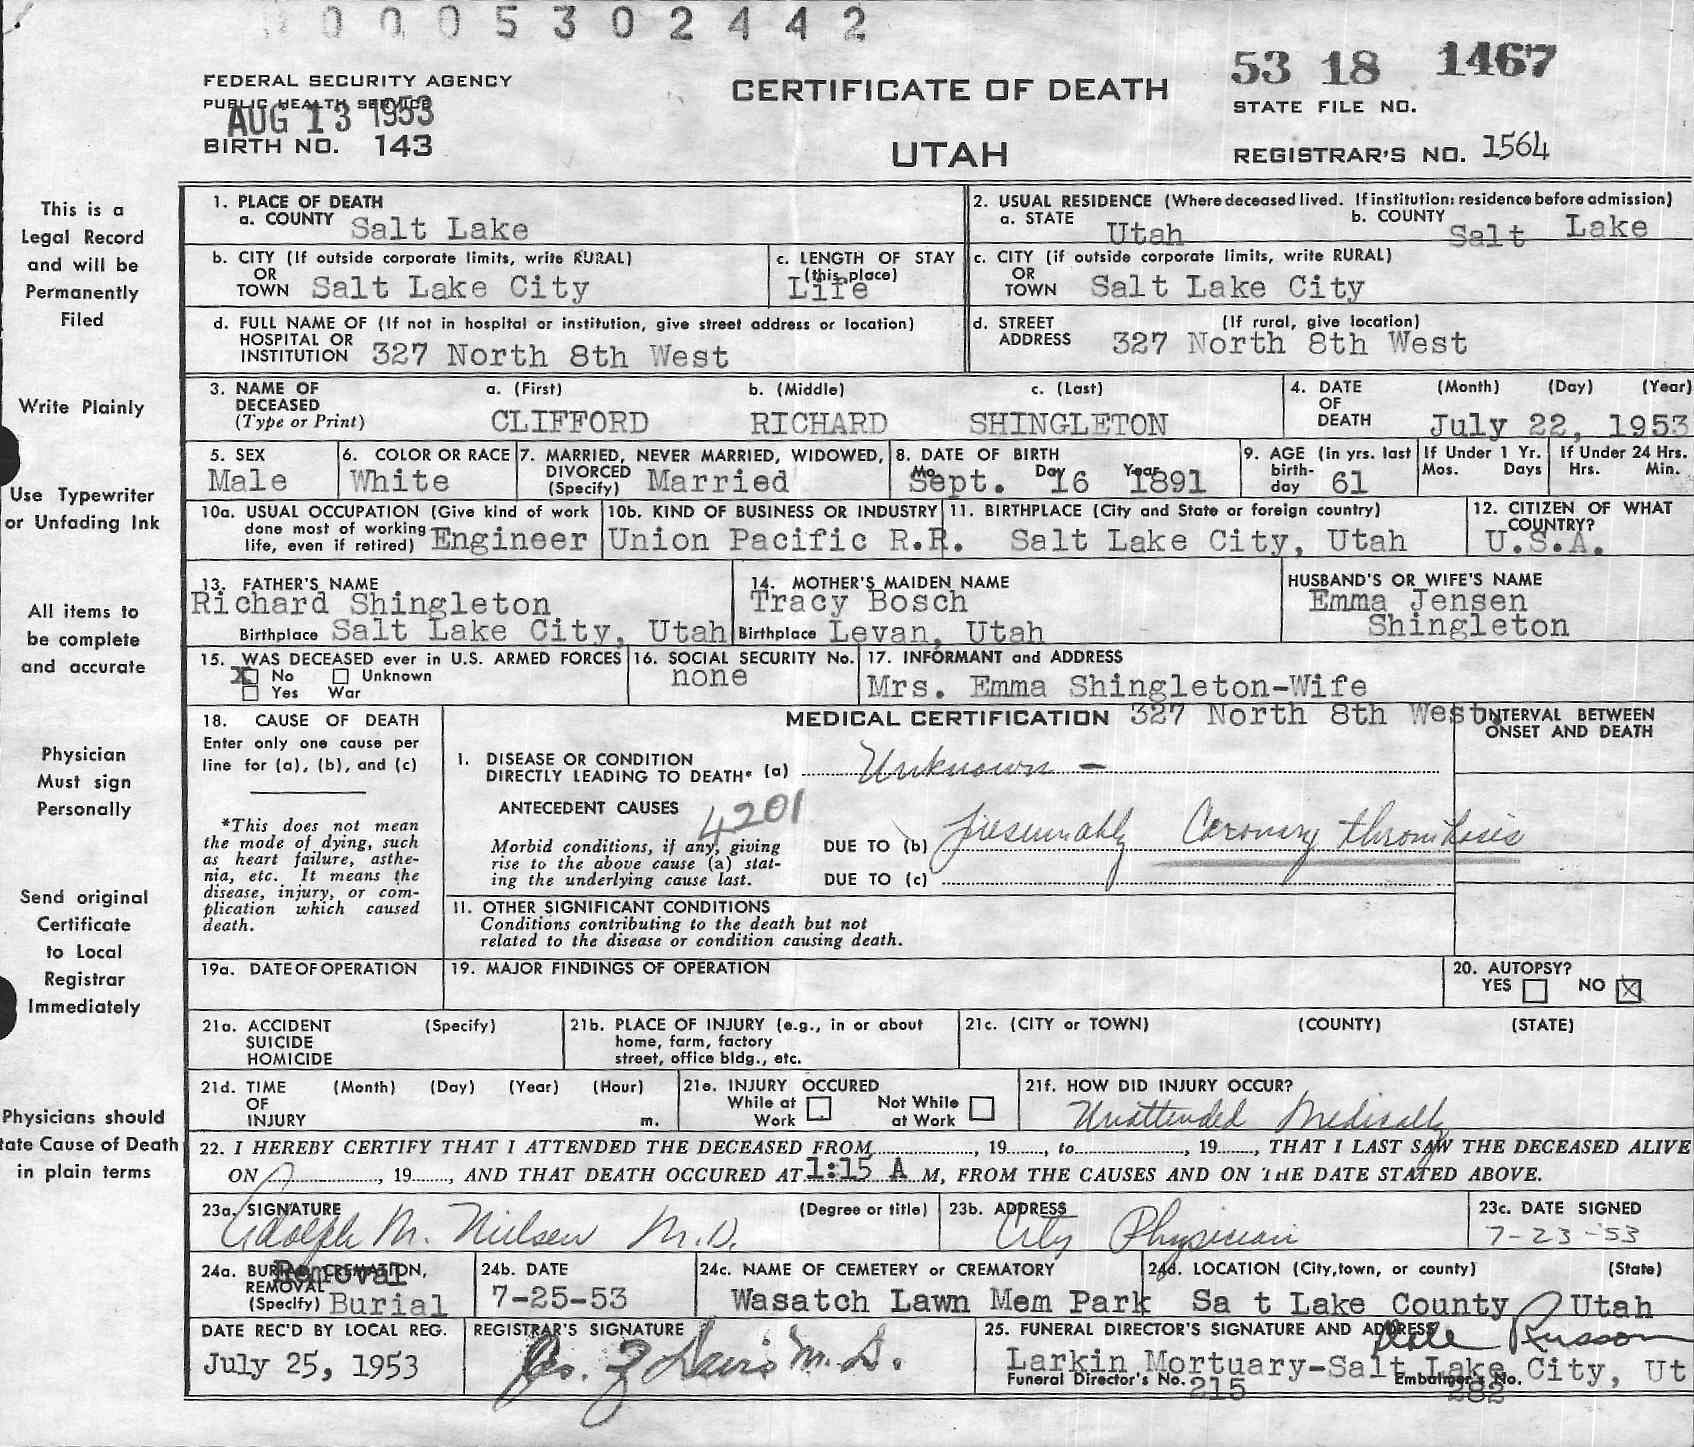 0 0 0 5 3 0 2 4 4 2
53 18 1467
FEDERAL SECURITY AGENCY
CERTIFICATE OF DEATH
STATE FILE NO.
PUBLIC HEALTH SERVICE
AUG 13 1953
BIRTH NO. 143
UTAH
REGISTRAR'S NO. 1564
This is a
Legal Record
and will be
Permanently
Filed
Write Plainly
Use Typewriter
or Unfading Ink
All items to
be complete
and accurate
Physician
Must sign
Personally
Send original
Certificate
to Local
Registrar
Immediately
Physicians should
tate Cause of Death
in plain terms
1. PLACE OF DEATH
a. COUNTY Salt Lake
2. USUAL RESIDENCE (Where deceased lived. If institution: residence before admission)
a. STATE Utah b. COUNTY Salt Lake
b. CITY (If outside corporate limits, write RURAL)
OR
TOWN Salt Lake City
c. LENGTH OF STAY
(this place)
Life
c. CITY (if outside corporate limits, write RURAL)
OR
TOWN Salt Lake City
d. FULL NAME OF (If not in hospital or institution, give street address or location)
HOSPITAL OR
INSTITUTION 327 North 8th West
d. STREET (If rural, give location)
ADDRESS 327 North 8th West
3. NAME OF a. (First) b. (Middle) c. (Last)
DECEASED
(Type or Print) CLIFFORD RICHARD SHINGLETON
4. DATE (Month) (Day) (Year)
OF
DEATH July 22, 1953
5. SEX
Male
6. COLOR OR RACE
White
7. MARRIED, NEVER MARRIED, WIDOWED,
DIVORCED
(Specify) Married
8. DATE OF BIRTH
Mo. Day Year
Sept. 16 1891
9. AGE (in yrs. last
birth-
day 61
If Under 1 Yr.
Mos. Days
If Under 24 Hrs.
Hrs. Min.
10a. USUAL OCCUPATION (Give kind of work
done most of working
life, even if retired) Engineer
10b. KIND OF BUSINESS OR INDUSTRY
Union Pacific R.R.
11. BIRTHPLACE (City and State or foreign country)
Salt Lake City, Utah
12. CITIZEN OF WHAT
COUNTRY?
U.S.A.
13. FATHER'S NAME
Richard Shingleton
Birthplace Salt Lake City, Utah
14. MOTHER'S MAIDEN NAME
Tracy Bosch
Birthplace Levan, Utah
HUSBAND'S OR WIFE'S NAME
Emma Jensen
Shingleton
15. WAS DECEASED ever in U.S. ARMED FORCES
X No Unknown
Yes War
16. SOCIAL SECURITY No.
none
17. INFORMANT and ADDRESS
Mrs. Emma Shingleton-Wife
327 North 8th West.
18. CAUSE OF DEATH
Enter only one cause per
line for (a), (b), and (c)
*This does not mean
the mode of dying, such
as heart failure, asthe-
nia, etc. It means the
disease, injury, or com-
plication which caused
death.
MEDICAL CERTIFICATION
INTERVAL BETWEEN
ONSET AND DEATH
1. DISEASE OR CONDITION
DIRECTLY LEADING TO DEATH* (a) Unknown -
ANTECEDENT CAUSES 4201
Morbid conditions, if any, giving
rise to the above cause (a) stat-
ing the underlying cause last.
DUE TO (b) presumably Coronary thrombosis
DUE TO (c)
11. OTHER SIGNIFICANT CONDITIONS
Conditions contributing to the death but not
related to the disease or condition causing death.
19a. DATE OF OPERATION
19. MAJOR FINDINGS OF OPERATION
20. AUTOPSY?
YES NO X
21a. ACCIDENT (Specify)
SUICIDE
HOMICIDE
21b. PLACE OF INJURY (e.g., in or about
home, farm, factory
street, office bldg., etc.
21c. (CITY or TOWN) (COUNTY) (STATE)
21d. TIME (Month) (Day) (Year) (Hour)
OF
INJURY m.
21e. INJURY OCCURED
While at Not While
Work at Work
21f. HOW DID INJURY OCCUR?
Unattended Medically
22. I HEREBY CERTIFY THAT I ATTENDED THE DECEASED FROM , 19 , to , 19 , THAT I LAST SAW THE DECEASED ALIVE
ON , 19 , AND THAT DEATH OCCURED AT 1:15 A M, FROM THE CAUSES AND ON THE DATE STATED ABOVE.
23a. SIGNATURE (Degree or title)
Adolph M. Nielsen M.D.
23b. ADDRESS
City Physician
23c. DATE SIGNED
7-23-53
24a. BURIAL, CREMATION,
Removal
REMOVAL
(Specify) Burial
24b. DATE
7-25-53
24c. NAME OF CEMETERY or CREMATORY
Wasatch Lawn Mem Park
24d. LOCATION (City, town, or county) (State)
Sa t Lake County Utah
DATE REC'D BY LOCAL REG.
July 25, 1953
REGISTRAR'S SIGNATURE
Jos. Z Davis M.D.
25. FUNERAL DIRECTOR'S SIGNATURE AND ADDRESS
Dale Russon
Larkin Mortuary-Salt Lake City, Ut
Funeral Director's No. 215 Embalmer's No. 282